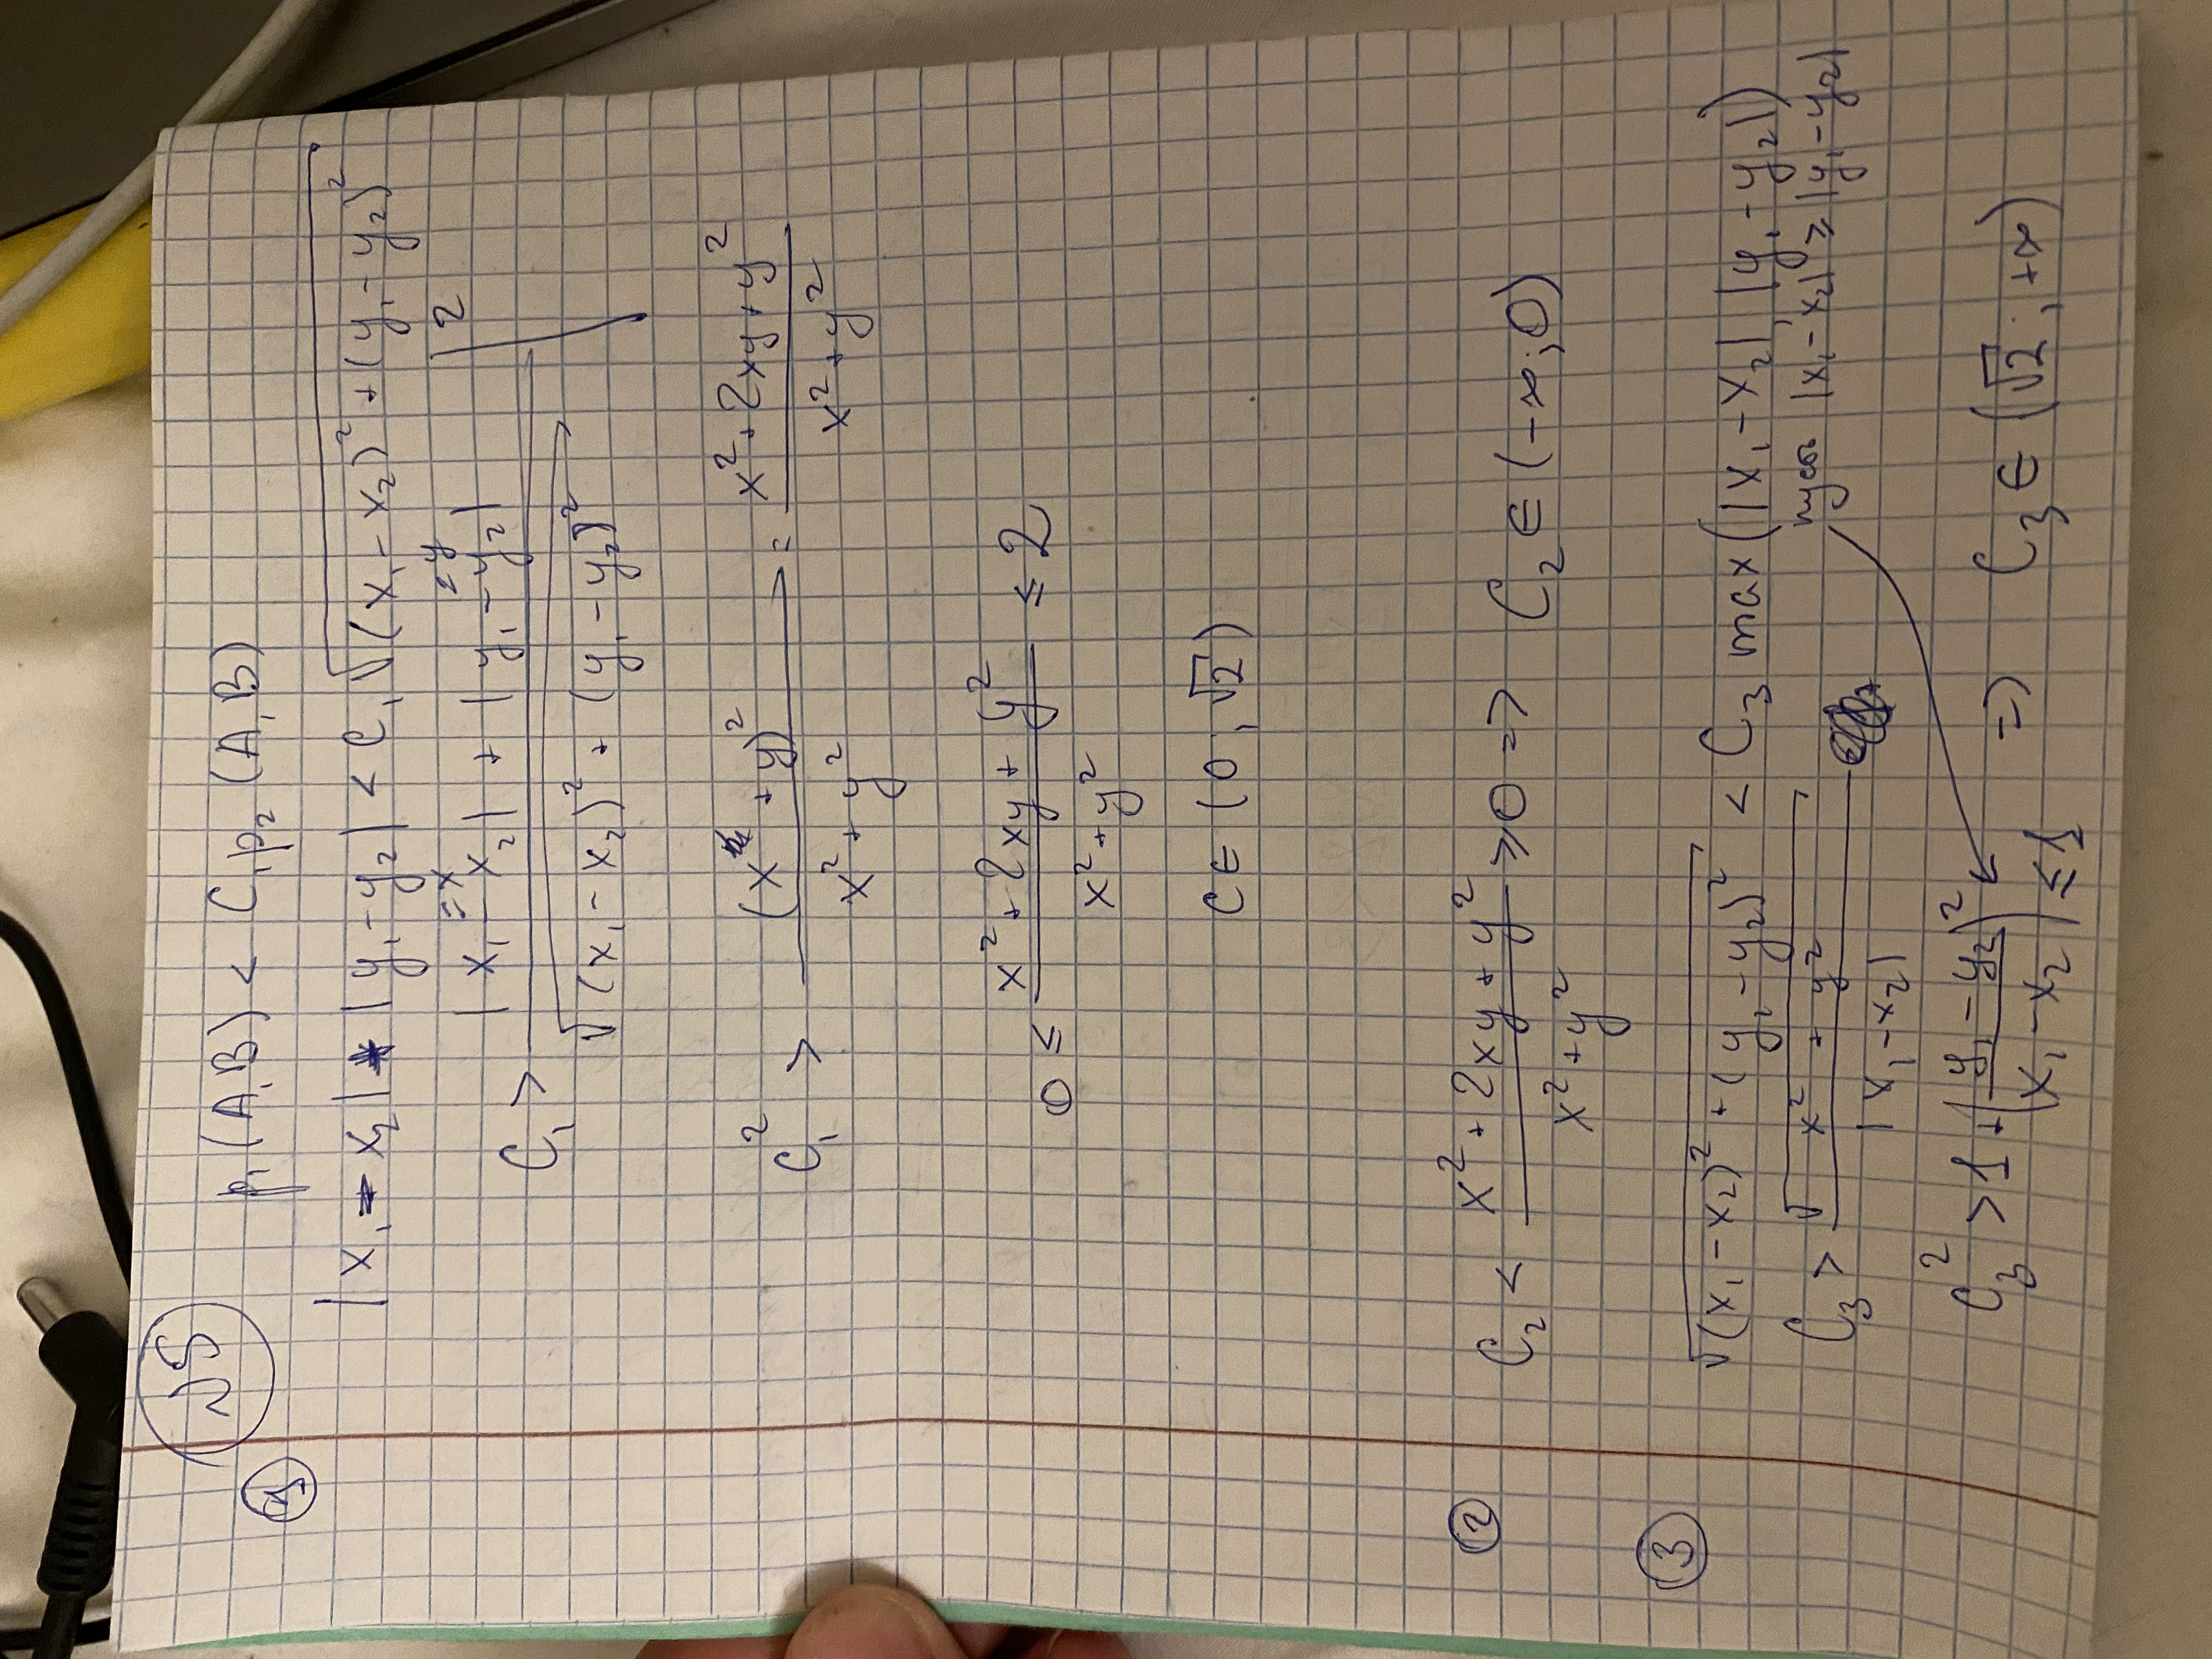 №5
① p₁(A,B) < C₁p₂(A,B)
|x₁ - x₂| + |y₁ - y₂| < C₁√((x₁ - x₂)² + (y₁ - y₂)²)
=x =y
C₁ > (|x₁ - x₂| + |y₁ - y₂|) / √((x₁ - x₂)² + (y₁ - y₂)²) |²
C₁² > (x + y)² / (x² + y²) = (x² + 2xy + y²) / (x² + y²)
0 ≤ (x² + 2xy + y²) / (x² + y²) ≤ 2
C ∈ (0; √2)
② C₂ < (x² + 2xy + y²) / (x² + y²) ≥ 0 => C₂ ∈ (-∞; 0)
③ √((x₁ - x₂)² + (y₁ - y₂)²) < C₃ max(|x₁ - x₂|, |y₁ - y₂|)
пусть |x₁ - x₂| ≥ |y₁ - y₂|
C₃ > √(x² + y²) / |x₁ - x₂|
C₃² > 1 + ((y₁ - y₂) / (x₁ - x₂))² ≤ 1 => C₃ ∈ (√2; +∞)